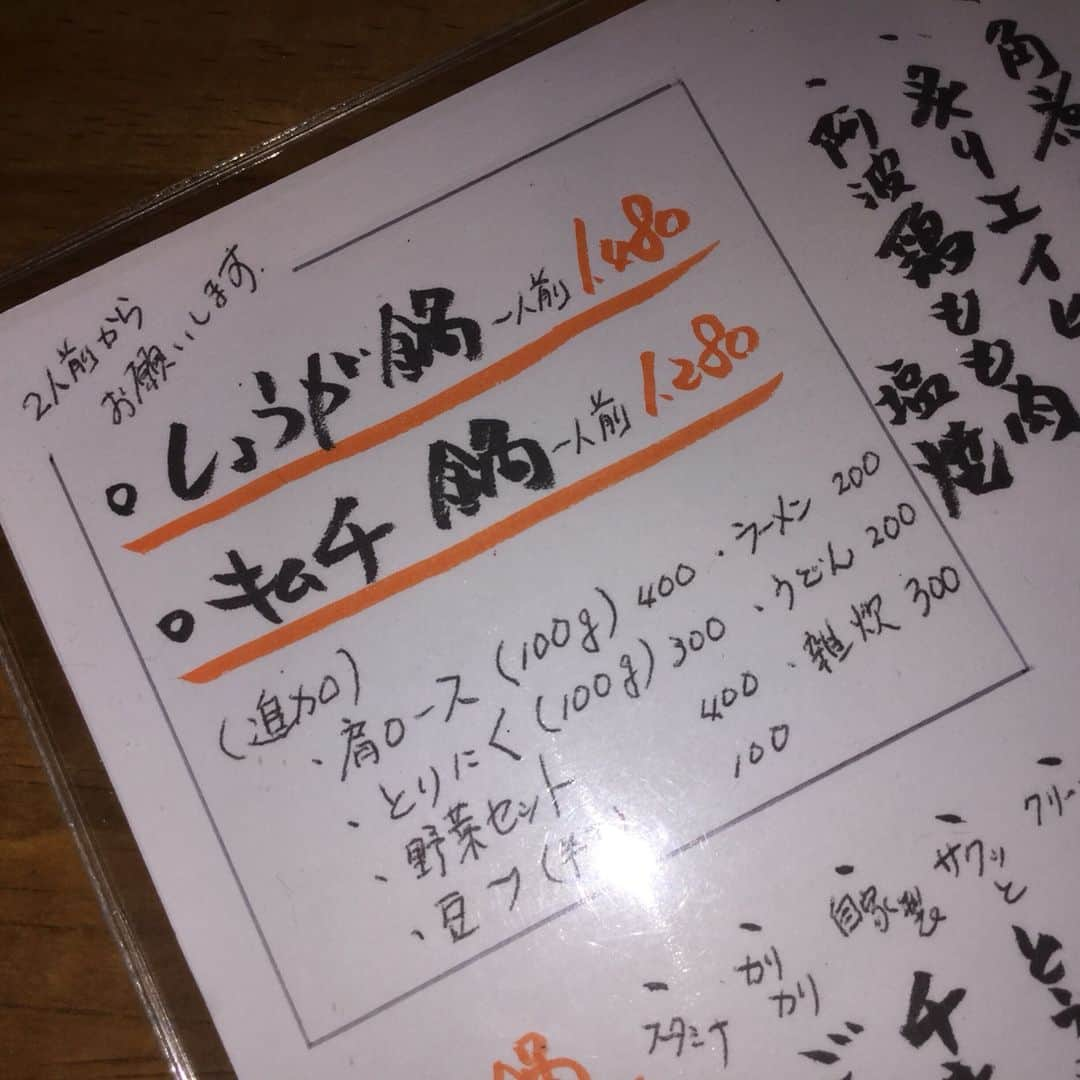 2人前から
お願いします。
しょうが鍋 一人前 1.480
キムチ鍋 一人前 1.280
(追加)
・肩ロース (100g) 400
・とりにく (100g) 300
・野菜セット 400
・豆フ 100
・ラーメン 200
・うどん 200
・雑炊 300
炙りエイヒ
・阿波鶏もも肉
塩焼
クリー
・サクッと
・自家製
チ
・カリカリ
・スタミナ
鍋